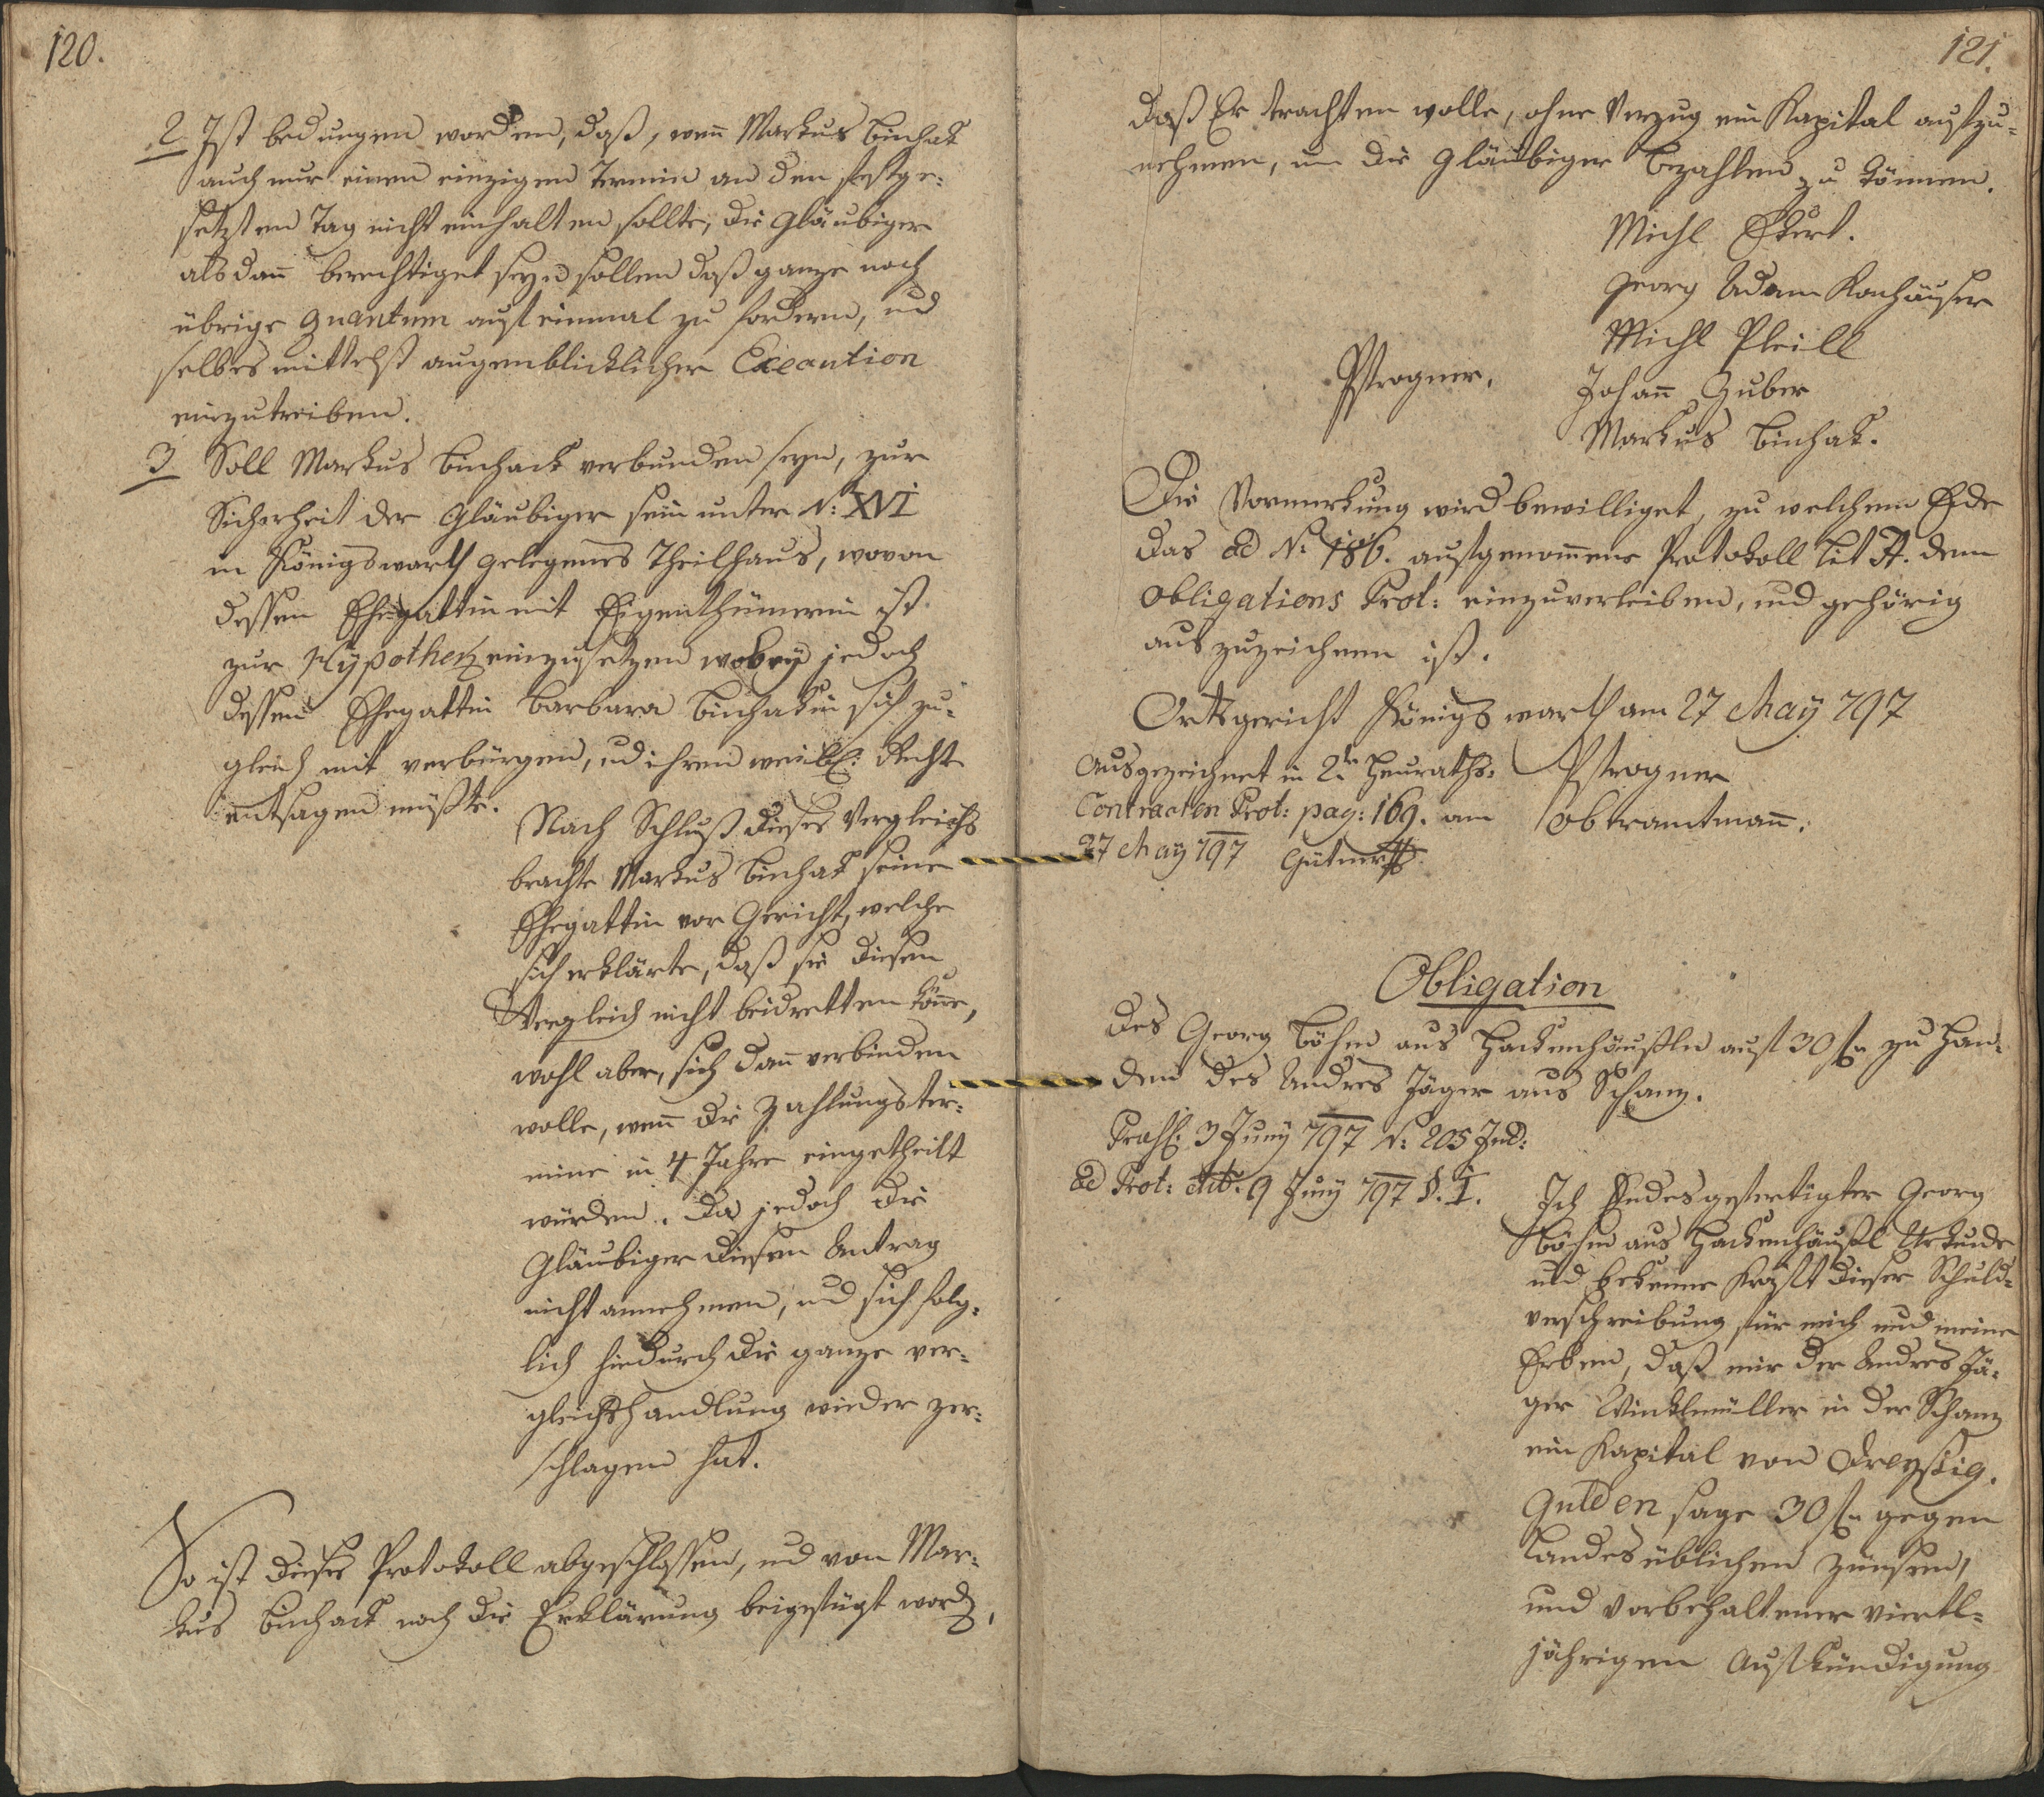 120.
2 Ist bedungen worden, daß, wenn Markus Buchak
auch nur einen einzigen Termin an den festge-
setzten Tag nicht einhalten sollte, die Gläubiger
alsdann berechtiget seyn sollen daß ganze noch
übrige Quantum auf einmal zu fordern, und
selbes mittelst augenblicklicher Execution
einzutreiben.
3 Soll Markus Buchack verbunden seyn, zur
Sicherheit der Gläubiger sein unter N: XVI
in Königswarth gelegenes Theilhaus, wovon
dessen Ehegattin mit Eigenthümerin ist
zur Hypothek einzusetzen wobey jedoch
dessen Ehegattin Barbara Buchakin sich zu-
gleich mit verbürgen, und ihren weibl: Recht
entsagen müßte.
Nach Schluß dieses Vergleichs
brachte Markus Buchak seine
Ehegattin vor Gericht, welche
sich erklärte, daß sie diesen
Vergleich nicht beidretten könne,
wohl aber, sich dann verbinden
wolle, wenn die Zahlungster-
mine in 4 Jahre eingetheilt
würden. Da jedoch die
Gläubiger diesen Antrag
nicht annehmen, und sich folg-
lich hiedurch die ganze ver-
gleichshandlung wieder zer-
schlagen hat.
So ist dieses Protokoll abgeschlossen, und von Mar-
kus Buchack noch die Erklärung beigefügt word,
121.
daß Er trachten wolle, ohne Verzug ein Kapital aufzu-
nehmen, um die Gläubiger bezahlen zu können.
Michl Ekert.
Georg Adam Kohhäuser
Michl Pleill
Pstrogner.
Johann Huber
Markus Buchak.
Die Vormerkung wird bewilliget, zu welchem Ende
das ad N: 186. aufgenommene Protokoll lit A. dem
Obligations Prot: einzuverleiben, und gehörig
auszuzeichnen ist.
Ortsgericht Königswarth am 27 May 797
Ausgezeichnet in 2tn Heuraths-
Contracten Prot: pag: 169. am
27 May 797 Gütner
Pstrogner
Oberamtmann.
Obligation
des Georg Böhm aus Hackenhäußln auf 30 fl zu Han-
den des Andres Jäger aus Schanz.
Präs: 3 Juny 797 N: 205 Jud:
ad Prot: 9 Juny 797 §. I.
Ich Endesgefertigter Georg
Böhm aus Hackenhäußl Urkunde
und bekenne Kraft dieser Schuld-
verschreibung für mich und meine
Erben, daß mir der Andres Jä-
ger Winklmüller in der Schanz
ein Kapital von Dreyßig
Gulden sage 30 fl gegen
Landesüblichen Zünsen,
und vorbehaltener viertl-
jährigen Aufkündigung